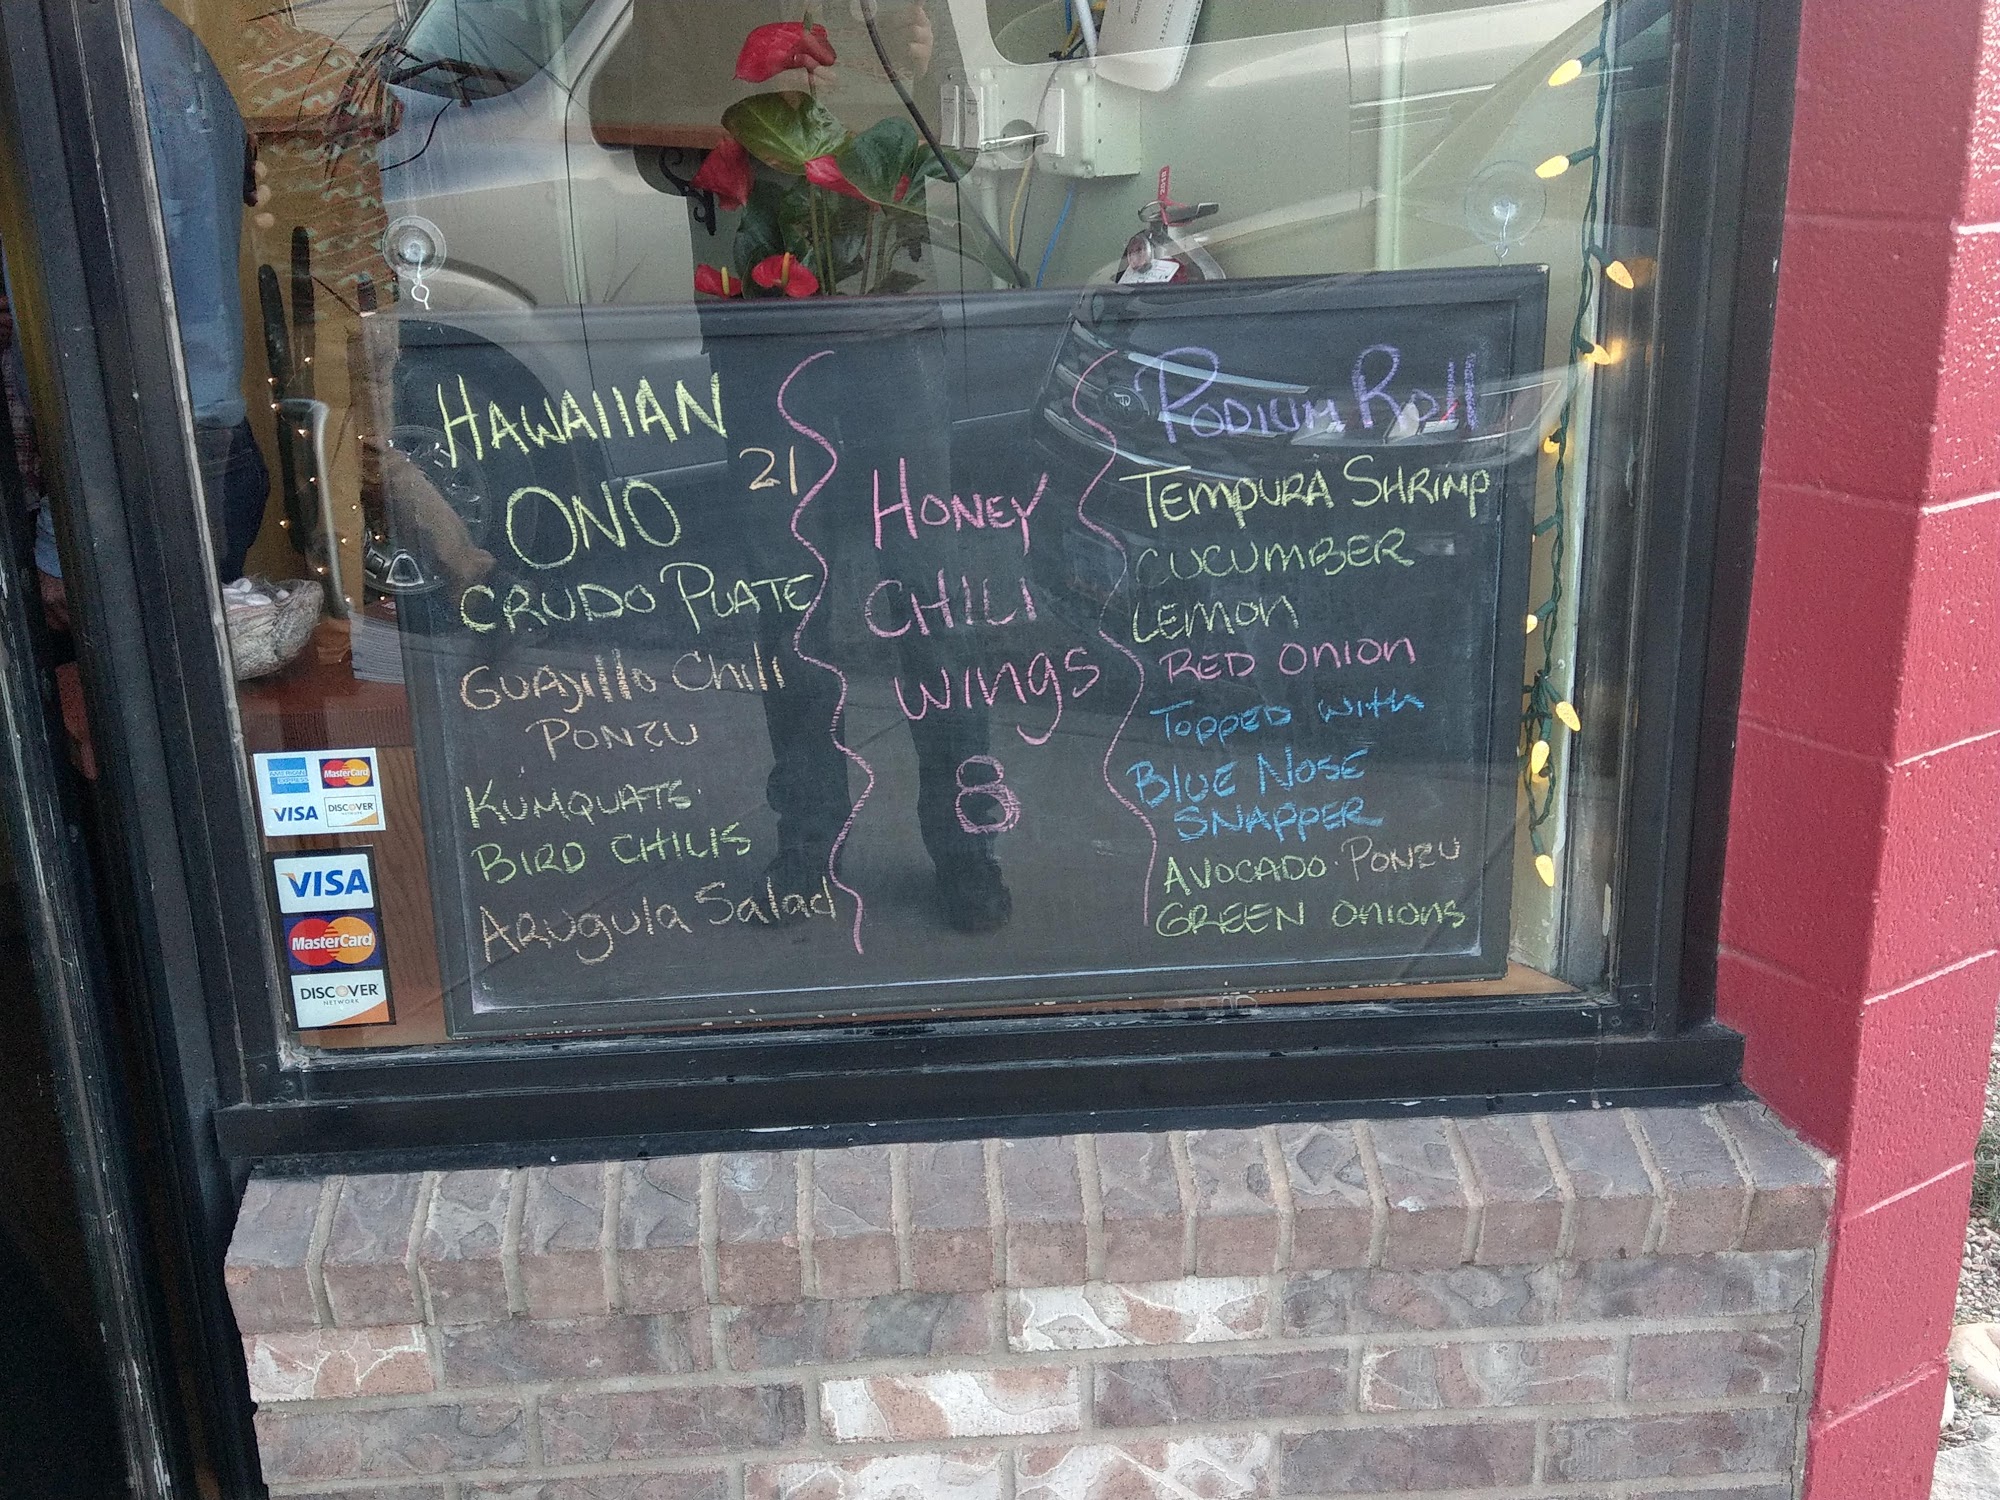 HAWAIIAN
ONO 21
CRUDO PLATE
GUAJillo Chili
PONZU
KUMQUATS
BIRD CHILIS
ARugula Salad
HONEY
CHILI
WINGS
8
PODIUM ROll
TEMPURA SHRIMP
CUCUMBER
LEMON
RED ONION
TOPPED WITH
BLUE NOSE
SNAPPER
AVOCADO · PONZU
GREEN ONIONS
AMERICAN EXPRESS
MasterCard
VISA
DISCOVER
VISA
MasterCard
DISCOVER
NETWORK